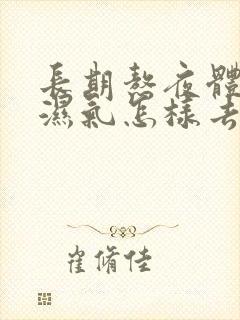 長期熬夜體
濕氣怎樣去
崔脩佳